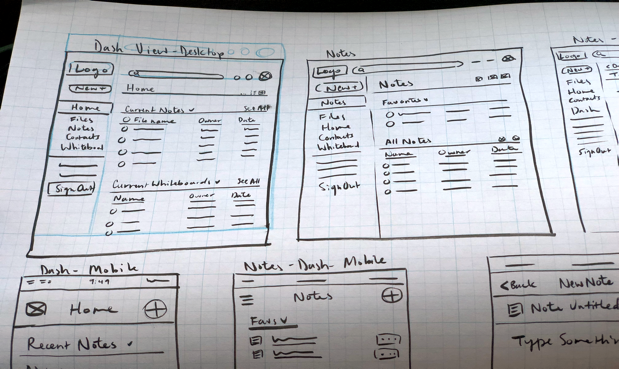 Dash View - Desktop
Logo
New+
Home
Home
Files
Notes
Contacts
Whiteboard
Sign Out
Current Notes
See All
Filename Owner Date
Current Whiteboards
See All
Name Owner Date
Notes
Logo
New+
Notes
Files
Home
Contacts
Whiteboard
Sign Out
Notes
Favorites
All Notes
Name Owner Date
Notes -
Logo
New+
Files
Home
Contacts
Dash
Sign Out
Dash - Mobile
9:49
Home
Recent Notes
Notes - Dash - Mobile
Notes
Favs
<Back New Note
Note Untitled
Type Somethin